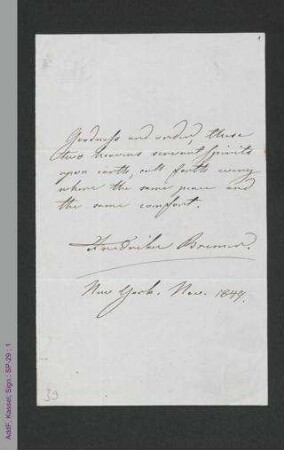 1
Goodness and order, these
two heavens servant spirits
upon earth, call forth every
where the same peace and
the same comfort.
Fredrika Bremer.
New York. Nov. 1849.
39
AddF, Kassel, Sign.: SP-29 ; 1